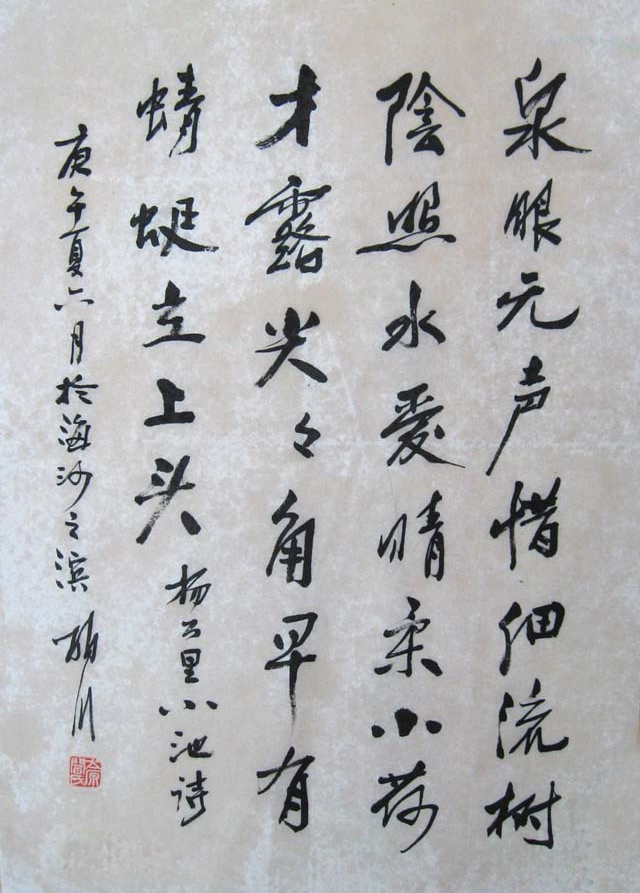 泉眼无声惜细流树
陰照水爱晴柔小荷
才露尖々角早有
蜻蜓立上头 杨万里小池诗
庚午夏六月於海沙之滨